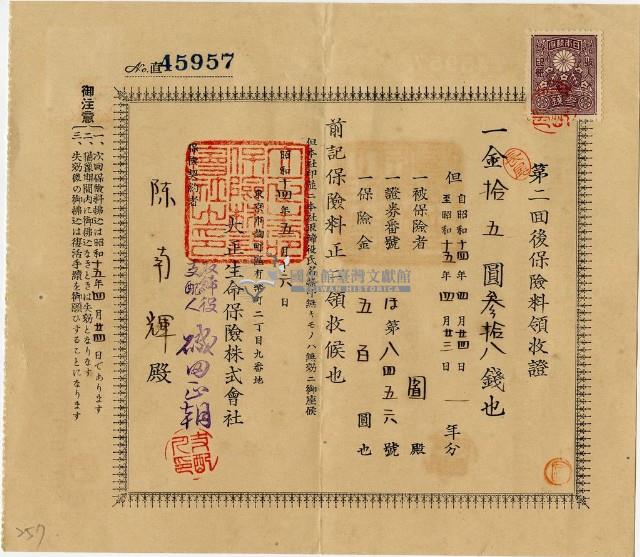 No.直45957
第二回後保險料領收證
一金拾五圓參拾八錢也
但 自昭和十四年四月廿四日
至昭和十五年四月廿三日 一年分
一被保險者 圖殿
一證券番號 は第八四五二六號
一保險金 五百圓也
前記保險料正ニ領收候也
但本社印並ニ本社取締役氏名
無キモノハ無効ニ御座候
昭和十四年五月十六日
東京市麴町區有樂町二丁目九番地
大正生命保險株式會社
取締役
支配人 磯田正朝
保險契約者
陳南輝殿
御注意
一、次回保險料拂込は昭和十五年四月廿四日であります
二、猶豫期間内に御拂込なきときは失効となります
三、失効後の御拂込は復活手續を御願ひすることになります
國史館臺灣文獻館
TAIWAN HISTORICA
257